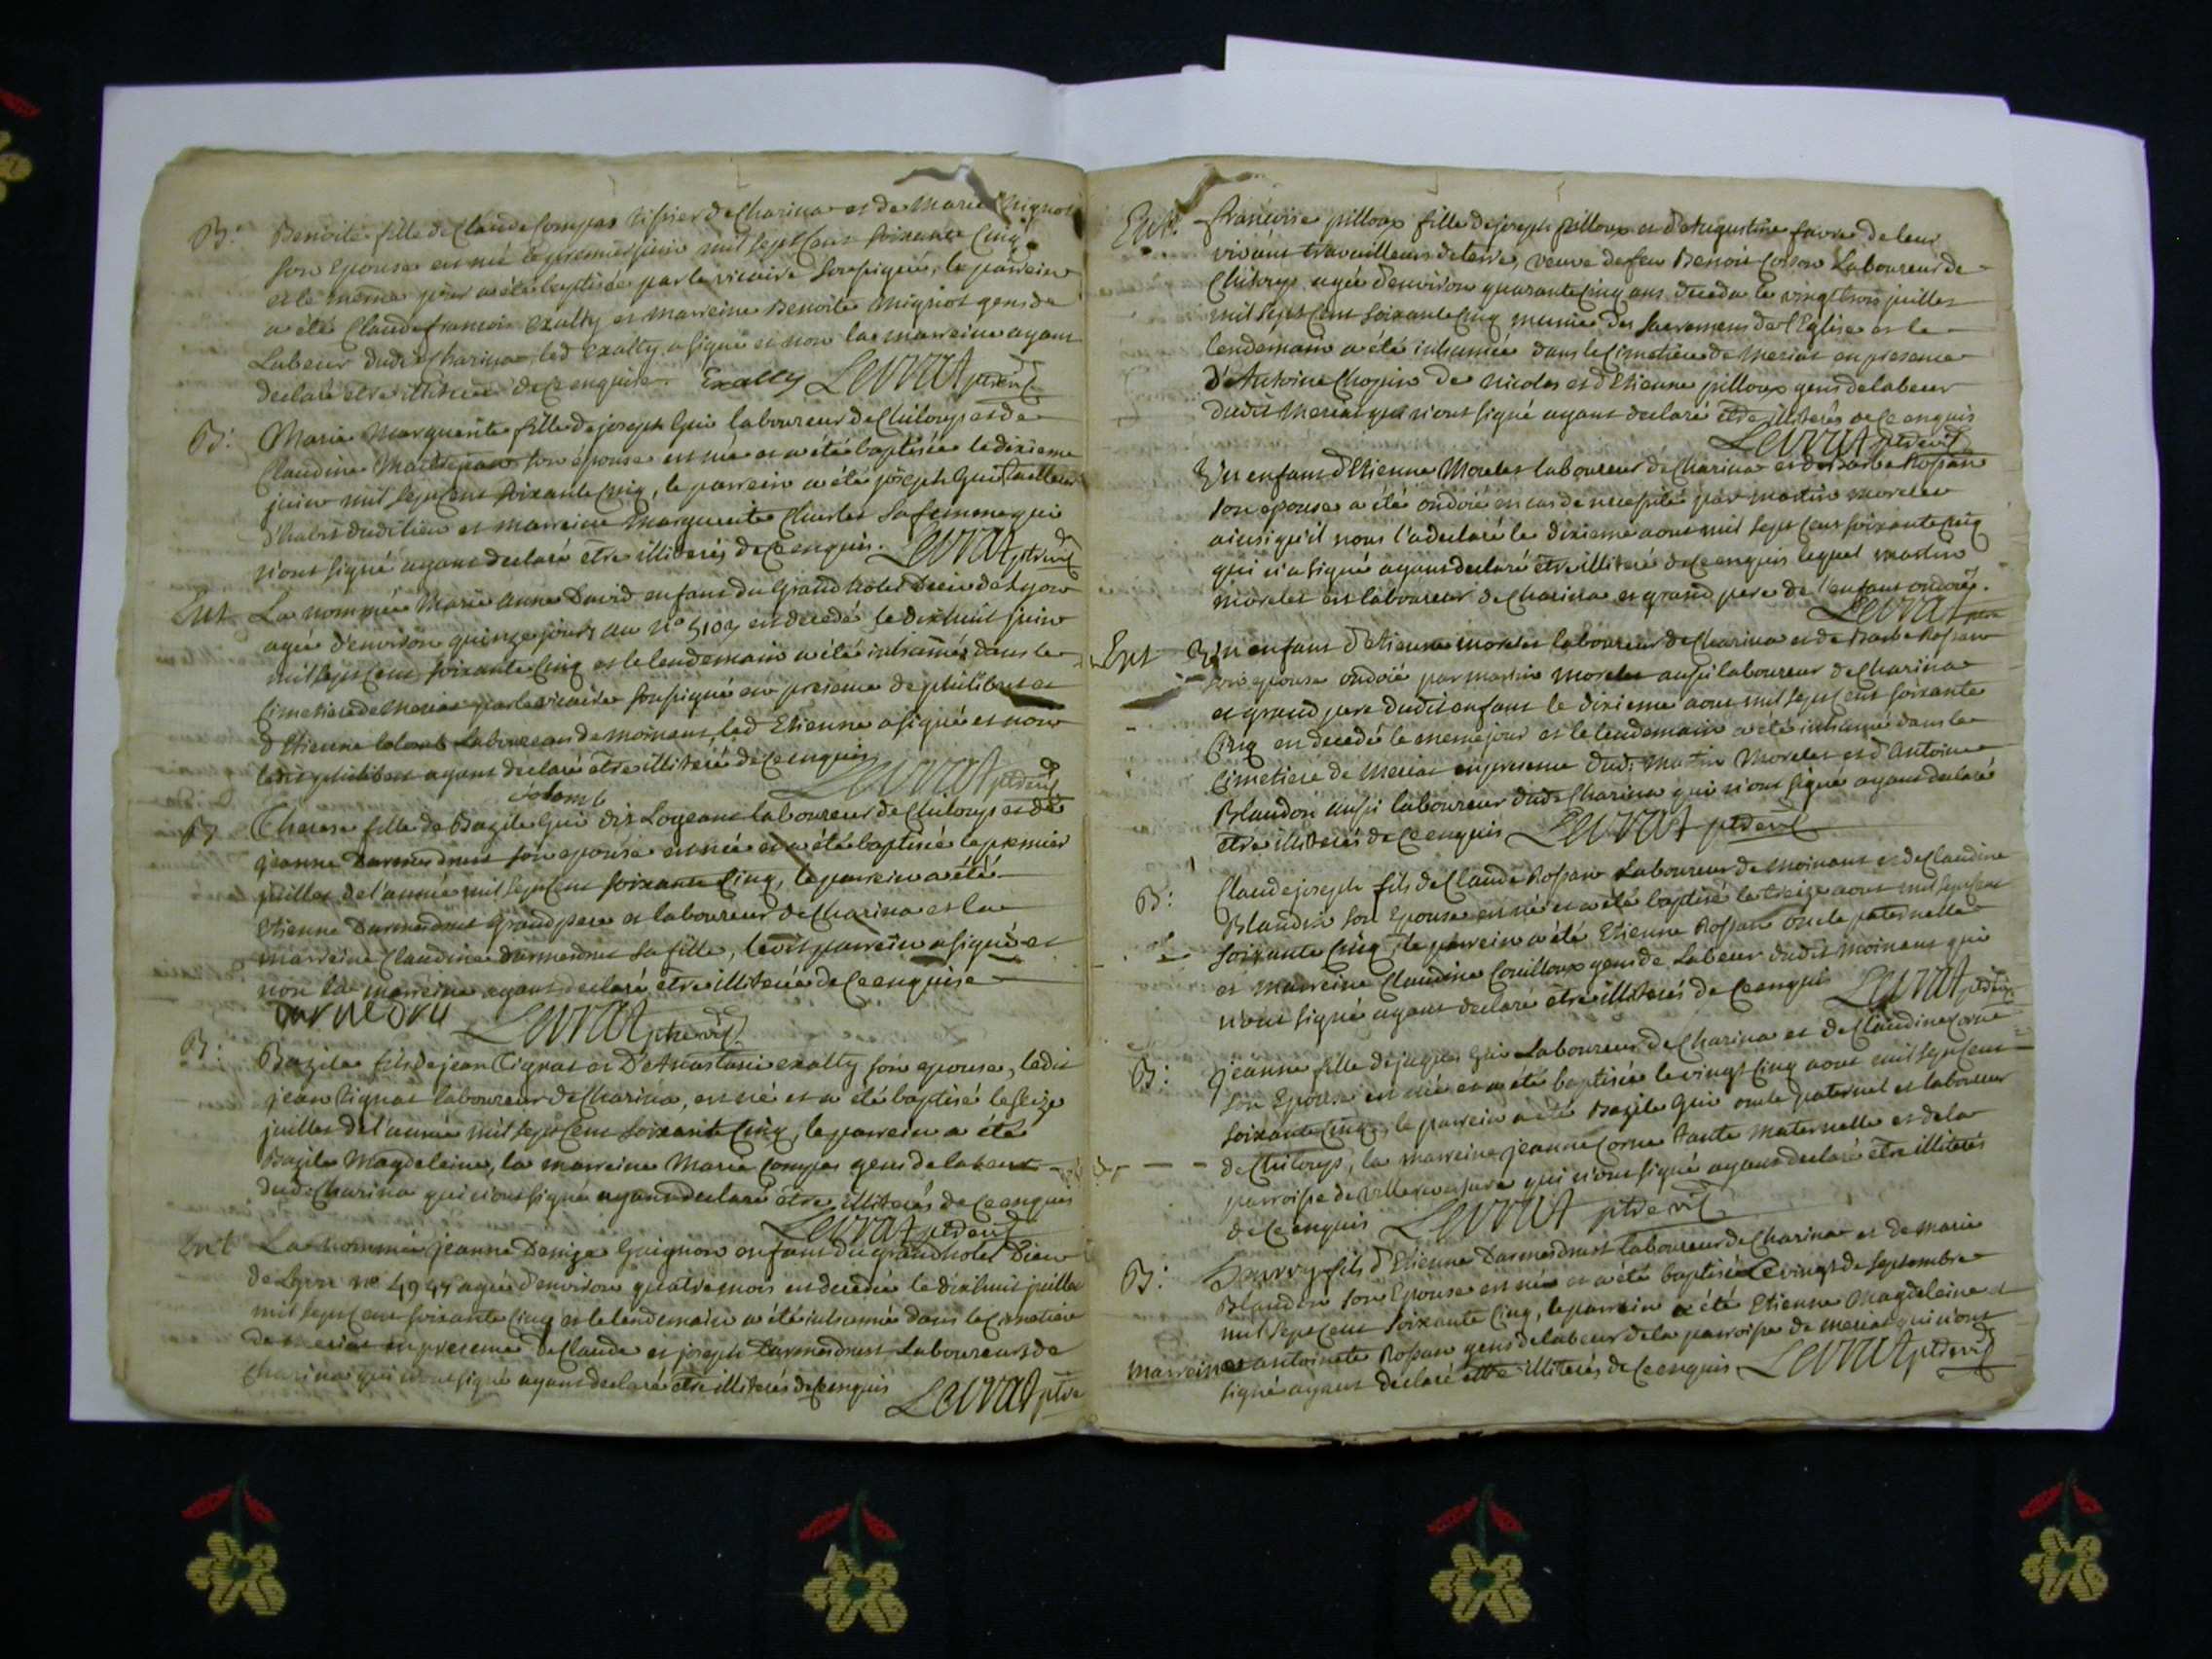 B: Benoite fille de Claude Compas tissier de Charina et de Marie Mignot
son Epouse est née le premier juin mil sept cent soixante cinq
et le même jour a été baptisée par le vicaire soussigné, le parrein
a été Claude francois Exalty et marreine Benoite Mignot gens de
Labeur dudit Charina led Exalty a signé et non la marreine ayant
declaré etre illiterée de ce enquise. Exalty Levrat ptre vic
B: Marie Marguerite fille de joseph Gui laboureur de Chiloup et de
Claudine son epouse est née et a été baptisée le dixieme
juin mil sept cent soixante cinq, le parrein a été joseph Gui tailleur
d'habit dudit lieu et marreine Marguerite Charlet sa femme qui
n'ont signé ayant declaré être illiterés de ce enquis. Levrat ptre vic
Ent La nommée Marie anne David enfant du Grand hotel Dieu de Lyon
agée d'environ quinze jours au n° 5103 est decedé le dixhuit juin
mil sept cent soixante cinq et le lendemain a été inhumée dans le
Cimetiere de Meriat par le vicaire soussigné en presence de philibert et
d'Etienne Colomb Laboureurs de moinant, led Etienne a signé et non
ledit philibert ayant declaré être illiteré de ce enquis Levrat ptre vic
Colomb
B Therese fille de Bazile Gui dit Logeant laboureur de Chiloup et de
jeanne Darmedru son epouse est née et a été baptisée le premier
juillet de l'année mil sept cent soixante cinq, le parrein a été
Etienne Darmedru Grand pere et laboureur de Charina et la
marreine Claudine Darmedru sa fille, ledit parrein a signé et
non la marreine ayant declaré être illiterée de ce enquise
Darmedru Levrat ptre vic
B: Bazile fils de jean Tignat et D'Anastasie exalty son epouse, ledit
jean Tignat laboureur de Charina, est né et a été baptisé le seize
juillet de l'année mil sept cent soixante cinq, le parrein a été
Bazile Magdeleine, la marreine Marie Compas gens de labeur
dud: Charina qui n'ont signé ayant declaré être illiterés de ce enquis
Levrat ptre vic
Ent La nommée jeanne Denize Guignon enfant du grand hotel Dieu
de Lyon n° 4947 agée d'environ quatre mois est decedée le dixhuit juillet
mil sept cent soixante cinq et le lendemain a été inhumée dans le Cimetiere
de Meriat en presence de Claude et joseph Darmedru Laboureurs de
Charina qui n'ont signé ayant declaré être illiterés de ce enquis
Levrat ptre
Ent. francoise pilloux fille de joseph pilloux et d'Augustine favre de leur
vivant travailleurs de terre, veuve de feu Benoit Corron Laboureur de
Chiloup agée d'environ quarante cinq ans deceda le vingt trois juillet
mil sept cent soixante cinq munie des sacremens de l'Eglise et le
lendemain a été inhumée dans le Cimetiere de Meriat en presence
d'Antoine Chopin de Nicolas et d'Etienne pilloux gens de labeur
dudit Meriat qui n'ont signé ayant declaré être illiterés de ce enquis
Levrat ptre vic
Un enfant d'Etienne Morelet laboureur de Charina et de Barbe Rossan
son epouse a été ondoié en cas de necessité par martin morelet
ainsi qu'il nous l'a declaré le dixieme aout mil sept cent soixante cinq
qui n'a signé ayant declaré être illiteré de ce enquis lequel martin
morelet est laboureur de Charina et grand pere de l'enfant ondoié.
Levrat ptre
Ent Un enfant d'Etienne morelet laboureur de Charina et de Barbe Rossan
son epouse ondoié par martin morelet aussi laboureur de Charina
et grand pere dudit enfant le dixieme aout mil sept cent soixante
Cinq est decedé le meme jour et le lendemain a été inhumé dans le
Cimetiere de Meriat en presence dud: Martin Morelet et d'Antoine
Blandon aussi laboureur dud: Charina qui n'ont signé ayant declaré
être illiterés de ce enquis Levrat ptre vic
B: Claude joseph fils de Claude Rossan Laboureur de moinant et de Claudine
Blandin son Epouse est né et a été baptisé le treize aout mil sept cent
soixante cinq le parrein a été Etienne Rossan oncle paternelle
et marreine Claudine Couilloux gens de Labeur dudit moinant qui
n'ont signé ayant declaré être illiterés de ce enquis Levrat ptre vic
B: jeanne fille de jaques Gui Laboureur de Charina et de Claudine Corne
son Epouse est née et a été baptisée le vingt cinq aout mil sept cent
soixante cinq, le parrein a été Bazile Gui oncle paternel et laboureur
de Chiloup, la marreine jeanne Corne tante maternelle et de la
parroisse de villereversure qui n'ont signé ayant declaré être illiterés
de ce enquis Levrat ptre vic
B: fils d'Etienne Darmedru laboureur de Charina et de Marie
Blandon son Epouse est né et a été baptisé Le vingt de septembre
mil sept cent soixante cinq, le parrein a été Etienne Magdeleine et
marreine antoinete Rossan gens de labeur de la parroisse de meriat qui n'ont
signé ayant declaré être illiterés de ce enquis Levrat ptre vic